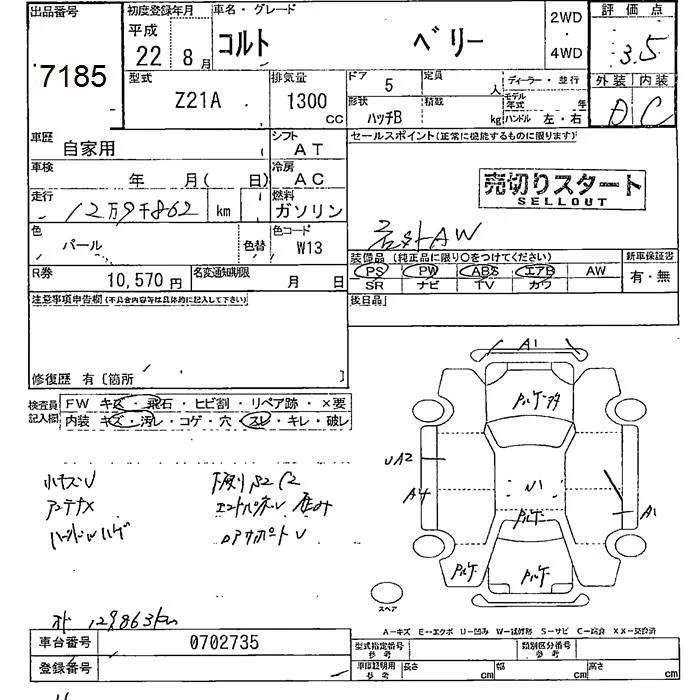 出品番号 初度登録年月 車名・グレード 2WD 評価点
平成 ・
22 8月 コルト ベリー 4WD 3.5
7185
型式 排気量 ドア 5 定員 人 ディーラー・並行 外装 内装
Z21A 1300 CC 形状 ハッチB 積載 kg モデル年式 年 ハンドル 左・右 D C
車歴 自家用 シフト AT セールスポイント(正常に機能するものに限ります)
車検 年 月( 日) 冷房 AC
売切りスタート
SELLOUT
走行 12万9千862 km 燃料 ガソリン
社外AW
色 パール 色替 色コード W13
装備品 (純正品に限り○をつけてください) 新車保証書
PS PW ABS エアB AW 有・無
R券 10,570円 名変通知期限 月 日
SR ナビ TV カワ
注意事項申告欄(不具合内容等は具体的に記入して下さい) 後日品
修復歴 有〔箇所 〕
検査員記入欄 FW キズ・飛石・ヒビ割・リペア跡・×要
内装 キズ・汚レ・コゲ・穴・スレ・キレ・破レ
A1
UA2
A4
U1
A1
アンテナX
ハンドルハゲ
スペア
オト 129863km
A-キズ E-エクボ U-凹み W-補修跡 S-サビ C-腐食 XX-交換済
車台番号 0702735 型式指定番号 参考 類別区分番号 参考
登録番号 車庫証明用 参考 長さ cm 幅 cm 高さ cm